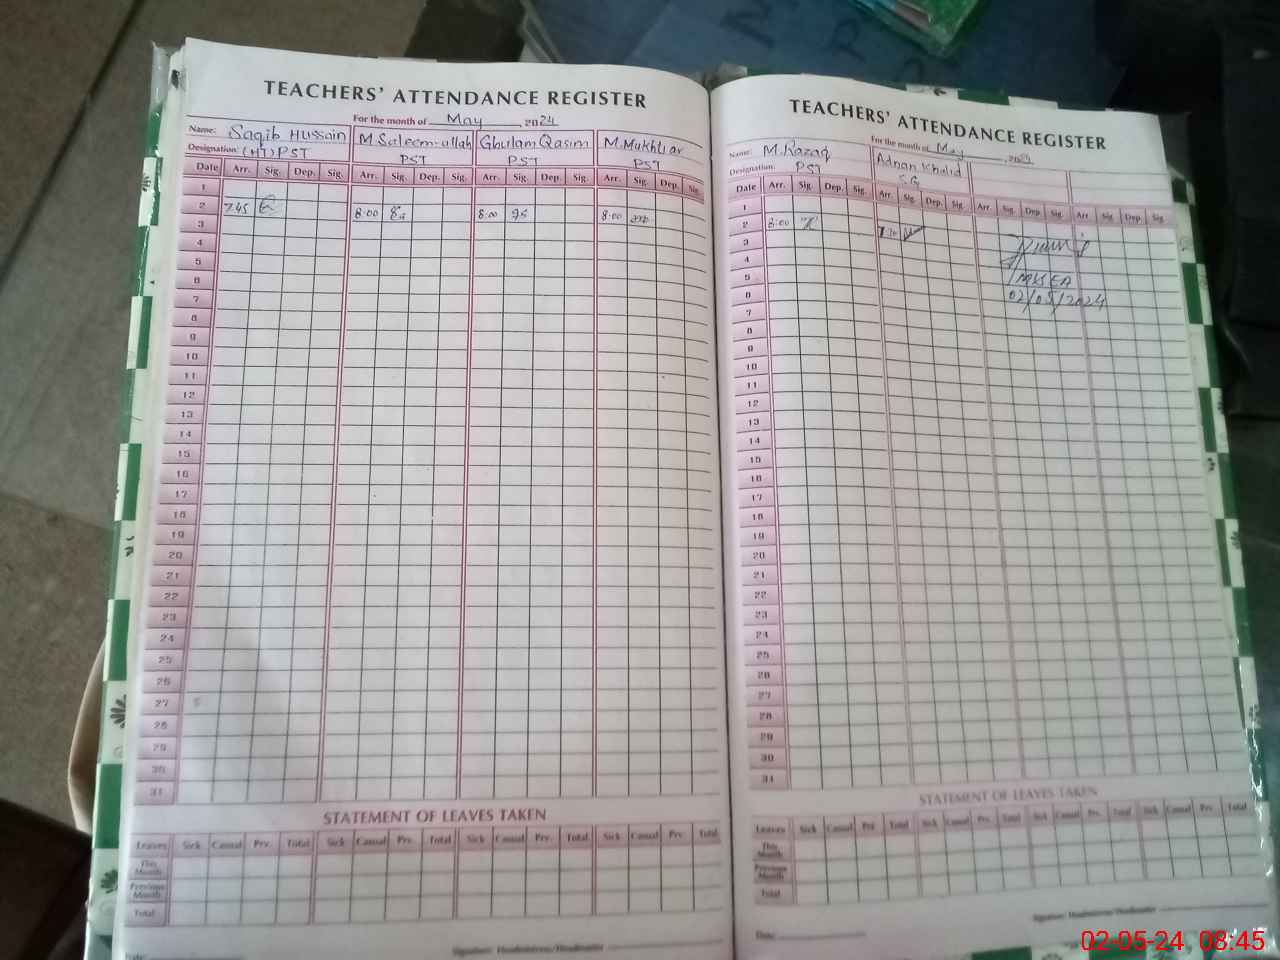 TEACHERS' ATTENDANCE REGISTER
For the month of May 2024
Name: Saqib Hussain M Saleem-ullah Ghulam Qasim M. Mukhtiar
Designation: (HT) PST PST PST PST
Date Arr. Sig. Dep. Sig. Arr. Sig. Dep. Sig. Arr. Sig. Dep. Sig. Arr. Sig. Dep. Sig.
1
2 7:45 8:00 8:00 8:00
3
4
5
6
7
8
9
10
11
12
13
14
15
16
17
18
19
20
21
22
23
24
25
26
27
28
29
30
31
STATEMENT OF LEAVES TAKEN
Leaves Sick Casual Prv. Total Sick Casual Prv. Total Sick Casual Prv. Total Sick Casual Prv. Total
This Month
Previous Month
Total
Signature: Headmistress/Headmaster
Date:
TEACHERS' ATTENDANCE REGISTER
For the month of May 2024
Name: M. Razaq Adnan Khalid
Designation: PST
Date Arr. Sig. Dep. Sig. Arr. Sig. Dep. Sig. Arr. Sig. Dep. Sig. Arr. Sig. Dep. Sig.
1
2 8:00
3
4
5
6
7
8
9
10
11
12
13
14
15
16
17
18
19
20
21
22
23
24
25
26
27
28
29
30
31
02/05/2024
STATEMENT OF LEAVES TAKEN
Leaves Sick Casual Prv. Total Sick Casual Prv. Total Sick Casual Prv. Total Sick Casual Prv. Total
This Month
Previous Month
Total
Signature: Headmistress/Headmaster
Date:
02-05-24, 08:45